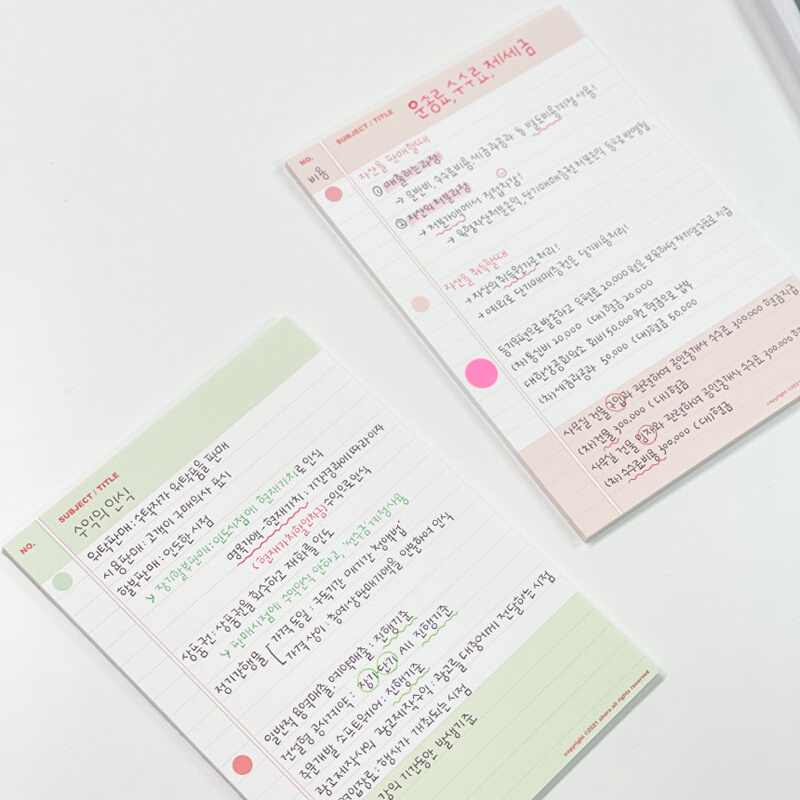 NO.
SUBJECT / TITLE
운송료, 수수료, 제세금
비용
자산을 판매할때
① 매출하는과정
→ 운반비, 수수료비용, 세금과공과 등 별도비용계정 사용!
② 자산의 처분과정
→ 처분가액에서 직접차감!
→ 유형자산처분손익, 단기매매증권처분손익 등으로 반영됨
자산을 취득할때
→ 자산의 취득원가로 처리!
→ 예외로 단기매매증권은 당기비용처리!
등기우편으로 발송하고 우편료 20,000원은 보유하던 자기앞수표로 지급
(차) 통신비 20,000 (대) 현금 20,000
대한상공회의소 회비 50,000원 현금으로 납부
(차) 세금과공과 50,000 (대) 현금 50,000
사무실 건물 구입과 관련하여 공인중개사 수수료 300,000 현금지급
(차) 건물 300,000 (대) 현금
사무실 건물 임차와 관련하여 공인중개사 수수료 300,000
(차) 수수료비용 300,000 (대) 현금
NO.
SUBJECT / TITLE
수익의 인식
위탁판매 : 수탁자가 위탁품을 판매
시용판매 : 고객이 구매의사 표시
할부판매 : 인도한 시점
↳ 장기할부판매 : 인도시점에 현재가치로 인식
명목가액 - 현재가치 : 기간경과에 따라 이자
(현재가치할인차금) 수익으로 인식
상품권 : 상품권을 회수하고 재화를 인도
↳ 판매시점에 수익인식 안하고, '선수금' 계정사용
정기간행물 [ 가격 동일 : 구독기간 매기간 '정액법'
가격 상이 : 총예상 판매가액을 안분하여 인식
일반적 용역매출, 예약매출 : 진행기준
건설형 공사계약 : 장기 단기 AII 진행기준
주문개발 소프트웨어 : 진행기준
광고제작사의 광고제작수익 : 광고를 대중에게 전달하는 시점
입장료 : 행사가 개최되는 시점
강의 기간동안 발생기준
copyright ©2021 ohora all rights reserved